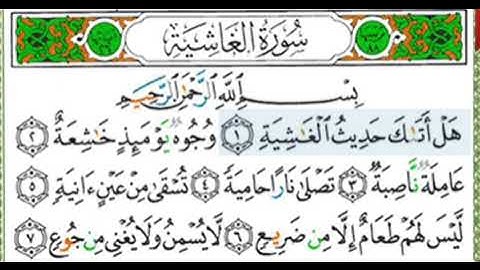 سُورَةُ الغَاشِيَةِ
بِسْمِ ٱللَّهِ ٱلرَّحْمَٰنِ ٱلرَّحِيمِ
هَلْ أَتَىٰكَ حَدِيثُ ٱلْغَٰشِيَةِ ١ وُجُوهٌ يَوْمَئِذٍ خَٰشِعَةٌ ٢
عَامِلَةٌ نَّاصِبَةٌ ٣ تَصْلَىٰ نَارًا حَامِيَةً ٤ تُسْقَىٰ مِنْ عَيْنٍ ءَانِيَةٍ ٥
لَّيْسَ لَهُمْ طَعَامٌ إِلَّا مِن ضَرِيعٍ ٦ لَّا يُسْمِنُ وَلَا يُغْنِى مِن جُوعٍ ٧